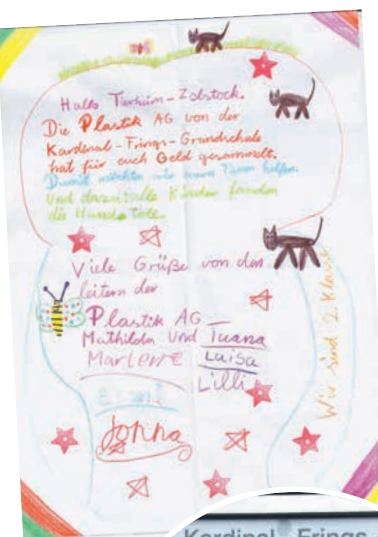 Hallo Tierheim-Zolstock.
Die Plastik AG von der
Kardenal-Frings-Grundschule
hat für euch Geld gesammelt.
Damit möchten wir euren Tieren helfen.
Und dazu alle Kinder fanden
die Hunde Tolle.
Viele Grüße von den
leitern der
Plastik AG
Mathilda und Tuana
Marlene Luisa
Lilli
Johna
Wir sind 2. Klasse
Kardinal Frings